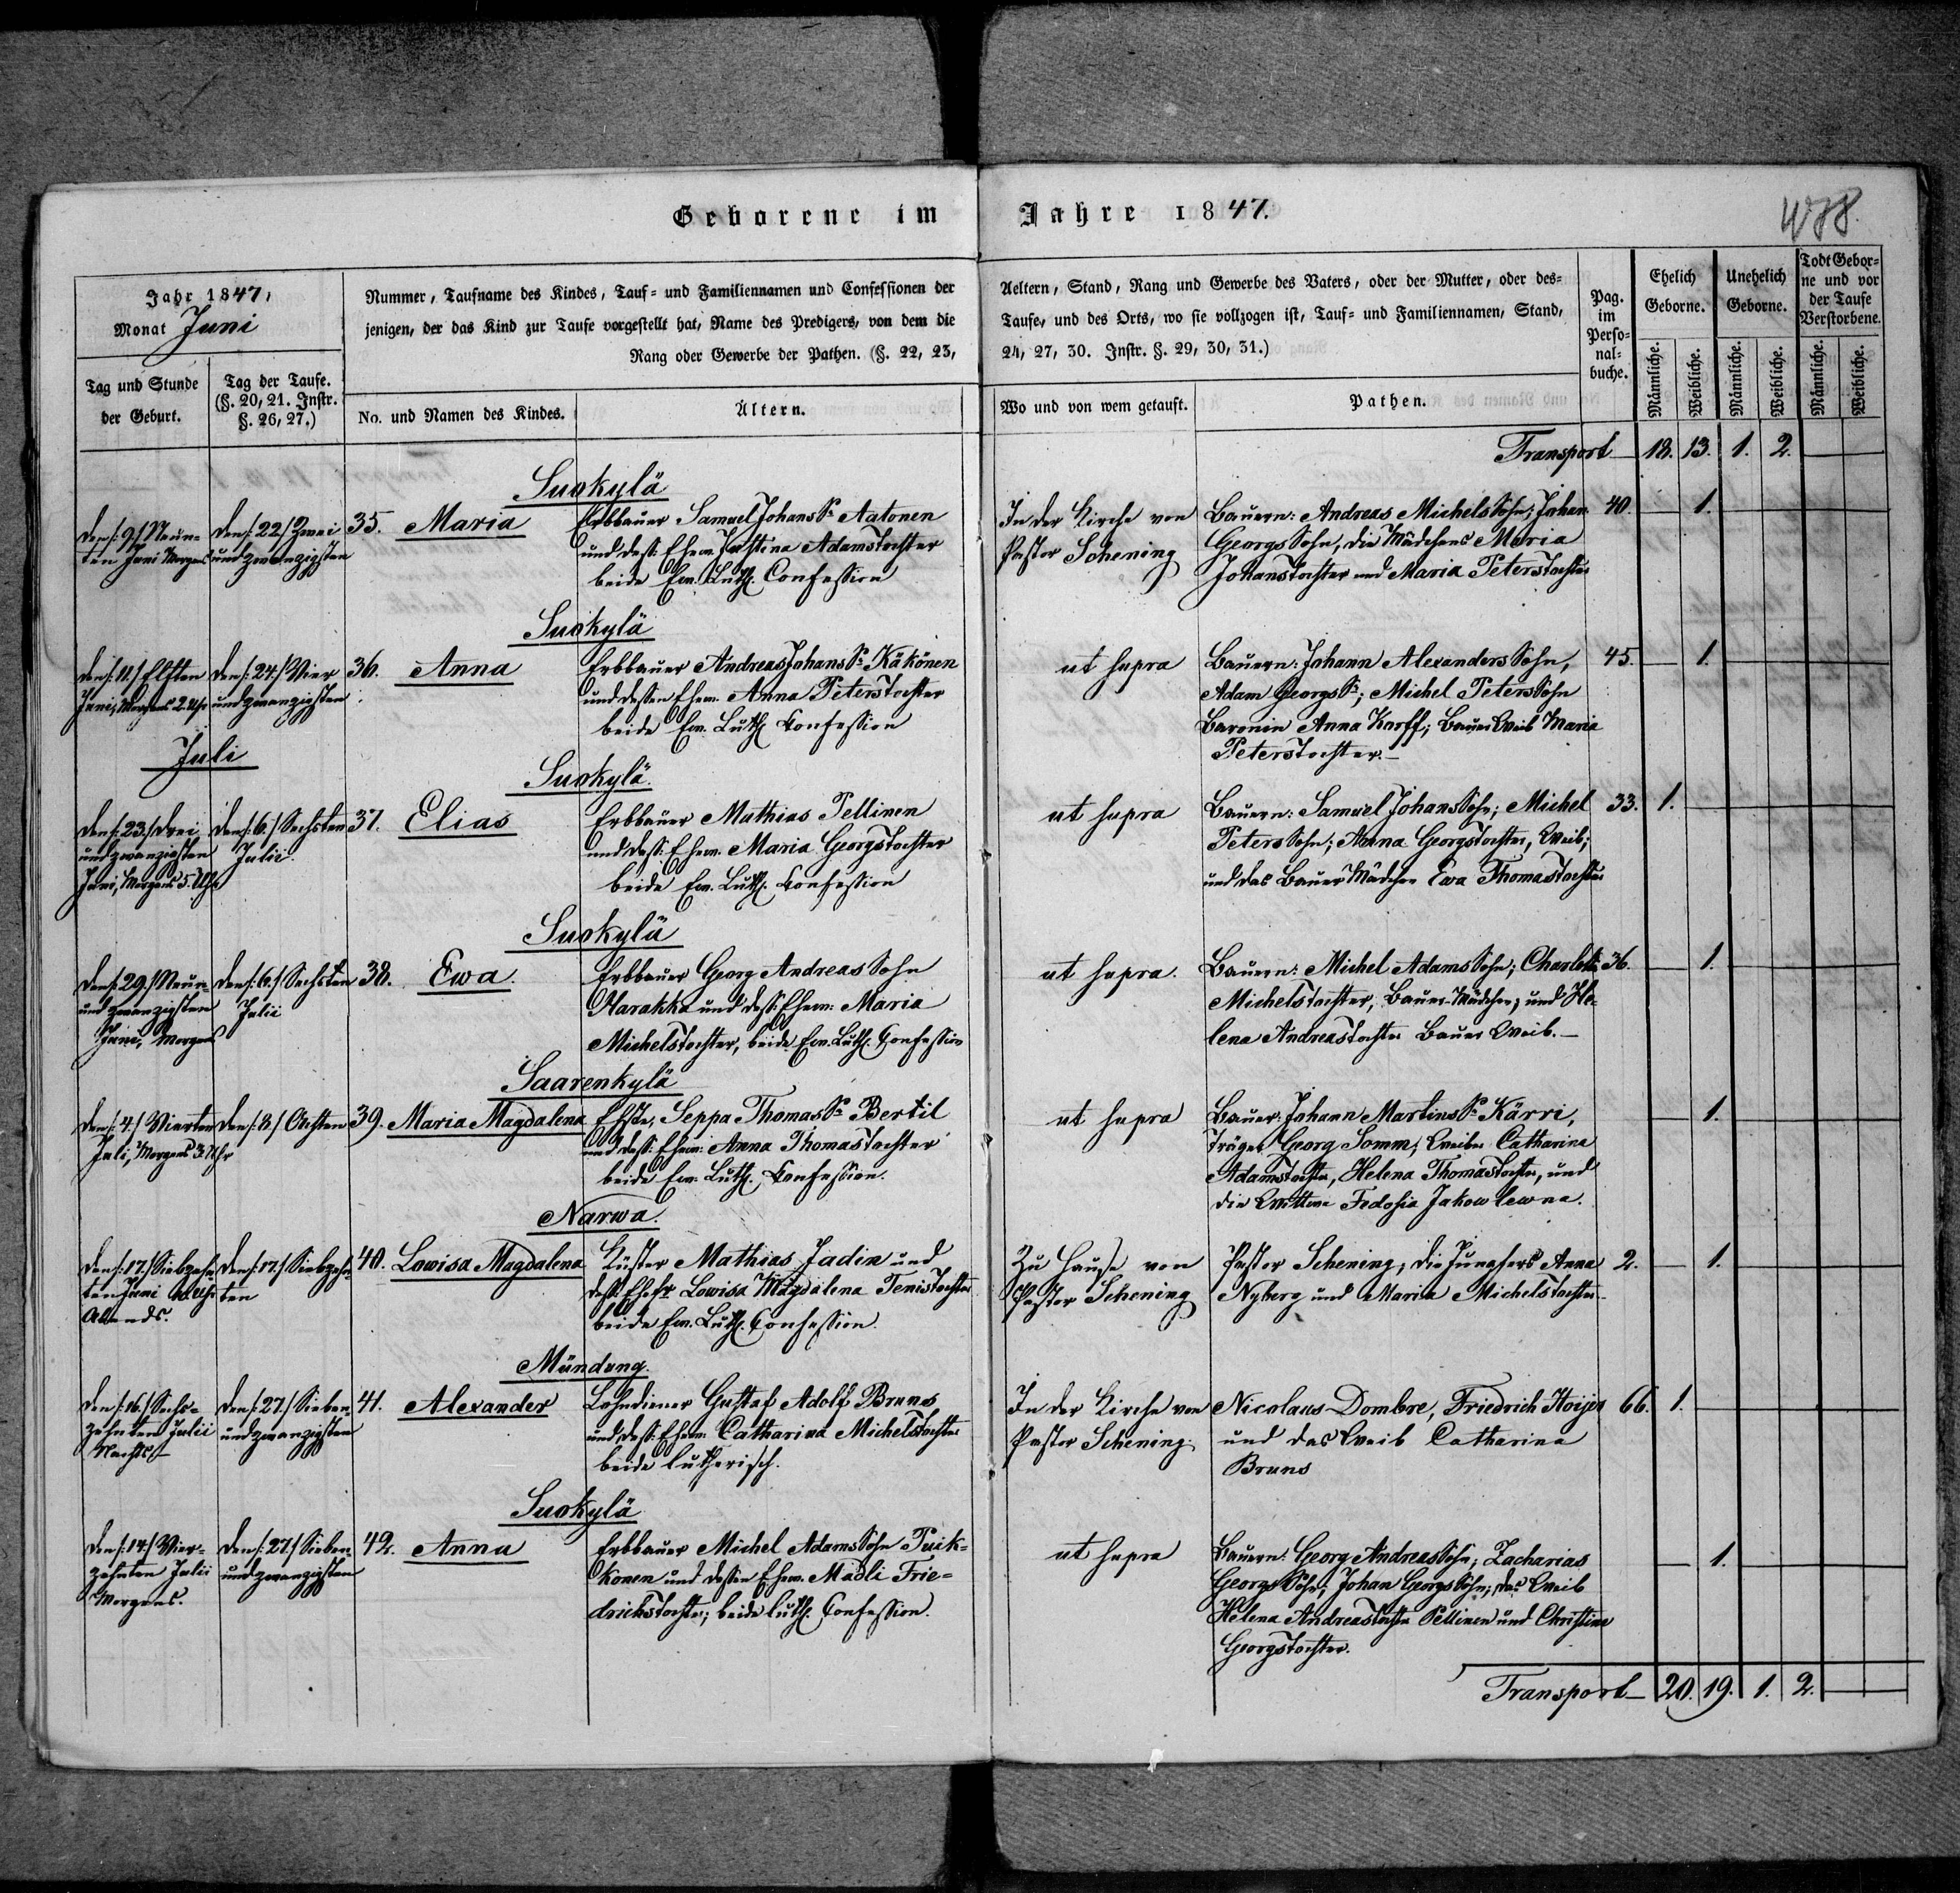 Geborene im Jahre 1847.
488.
Jahr 1847,
Monat Juni
Nummer, Taufname des Kindes, Tauf- und Familiennamen und Confessionen der
jenigen, der das Kind zur Taufe vorgestellt hat, Name des Predigers, von dem die
Rang oder Gewerbe der Pathen. (§. 22, 23,
Tag und Stunde
der Geburt.
Tag der Taufe.
(§. 20, 21. Instr.
§. 26, 27.)
No. und Namen des Kindes.
Ältern.
Aeltern, Stand, Rang und Gewerbe des Vaters, oder der Mutter, oder des-
Taufe, und des Orts, wo sie vollzogen ist, Tauf- und Familiennamen, Stand,
24, 27, 30. Instr. §. 29, 30, 31.)
Wo und von wem getauft.
Pathen.
Pag.
im
Perso-
nal-
buche.
Ehelich
Geborne.
Unehelich
Geborne.
Todt Gebor-
ne und vor
der Taufe
Verstorbene.
Männliche.
Weibliche.
Männliche.
Weibliche.
Männliche.
Weibliche.
Transport 18. 13. 1. 2.
Suokylä
den /:9:/ Neun-
ten Juni Morgens
den /:22:/ Zwei
und zwanzigsten
35. Maria
Erbbauer Samuel Johans Sn Aatonen
und dess: Ehew. Adamstochter
beide Ew. Luth. Confession
In der Kirche von
Pastor Schening
Bauern: Andreas Michels Sohn; Johan
Georgs Sohn, die Mädchens Maria
Johanstochter und Maria Peterstochter
40. 1.
Suokylä
den /:11:/ Elften
Juni, Morgens 2. Uhr
den /:24:/ Vier
und zwanzigsten
36. Anna
Erbbauer Andreas Johans Sn Käkönen
und dessen Ehew. Anna Peterstochter
beide Ew. Luth. Confession
ut supra
Bauern: Johann Alexanders Sohn,
Adam Georgs Sn; Michel Peters Sohn
Baronin Anna Korff; Bauer Weib Maria
Peterstochter.
45. 1.
Juli
Suokylä
den /:23:/ Drei
und zwanzigsten
Juni, Morgens 5. Uhr
den /:6:/ Sechsten
Julii.
37. Elias
Erbbauer Mathias Pellinen
und dess: Ehew. Maria Georgstochter
beide Ew. Luth. Confession
ut supra
Bauern: Samuel Johans Sohn; Michel
Peters Sohn; Anna Georgstochter, Weib;
und das Bauer Mädchen Ewa Thomastochter
33. 1.
Suokylä
den /:29:/ Neun-
und zwanzigsten
Juni, Morgens
den /:6:/ Sechsten
Julii
38. Ewa.
Erbbauer Georg Andreas Sohn
Harakka und dess: Ehew: Maria
Michelstochter, beide Ew. Luth. Confession
ut supra.
Bauern: Michel Adams Sohn; Charlotta
Michelstochter, Bauer-Mädchen; und He-
lena Andreastochter Bauer Weib.
36. 1.
Saarenkylä
den /:4:/ Vierten
Juli, Morgens 3 Uhr
den /:8:/ Achten
39. Maria Magdalena
Ehste, Seppa Thomas Sn Bertil
und dess: Ehew: Anna Thomastochter
beide Ew. Luth. Confession.
ut supra
Bauer Johann Martins Sn Kärri,
Träger Georg Somm; Weiber Catharina
Adamstochter, Helena Thomastochter, und
die Wittwe Fedosia Jakowlewna.
1.
Narwa.
den /:17:/ Siebzehn-
ten Juni Uhr
Abends.
den /:17:/ Siebzehn-
ten
40. Lowisa Magdalena
Küster Mathias Jadin und
dess: Ehefr. Lowisa Magdalena Tenistochter
beide Ew. Luth. Confession.
Zu Hause von
Pastor Schening
Pastor Schening; die Jungfers Anna
Nyberg und Maria Michelstochter.
2. 1.
Mündung.
den /:16:/ Sechs-
zehnten Julii
Nachts
den /:27:/ Sieben-
und zwanzigsten
41. Alexander
Lohndiener Gustaf Adolf Bruns
und dess: Ehew: Catharina Michelstochter
beide lutherisch.
In der Kirche von
Pastor Schening.
Nicolaus Dombre, Friedrich Hoijer
und das Weib Catharina
Bruns
66. 1.
Suokylä
den /:14:/ Vier-
zehnten Julii
Morgens.
den /:27:/ Sieben-
und zwanzigsten
42. Anna
Erbbauer Michel Adams Sohn Puik-
konen und dessen Ehew. Madli Frie-
drichstochter; beide luth. Confession.
ut supra
Bauern: Georg Andreas Sohn; Zacharias
Georgs Sohn; Johan Georgs Sohn; das Weib
Helena Andreastochter Pellinen und Christina
Georgstochter.
1.
Transport 20. 19. 1. 2.